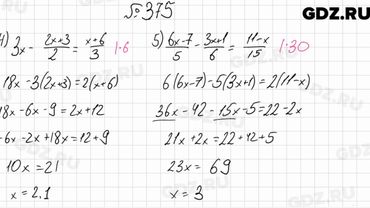 №375
GDZ.RU
4) 3x - (2x+3)/2 = (x+6)/3 | ·6
18x - 3(2x+3) = 2(x+6)
18x - 6x - 9 = 2x + 12
-6x - 2x + 18x = 12 + 9
10x = 21
x = 2,1
5) (6x-7)/5 - (3x+1)/6 = (11-x)/15 | ·30
6(6x-7) - 5(3x+1) = 2(11-x)
36x - 42 - 15x - 5 = 22 - 2x
21x + 2x = 22 + 42 + 5
23x = 69
x = 3
GDZ.RU